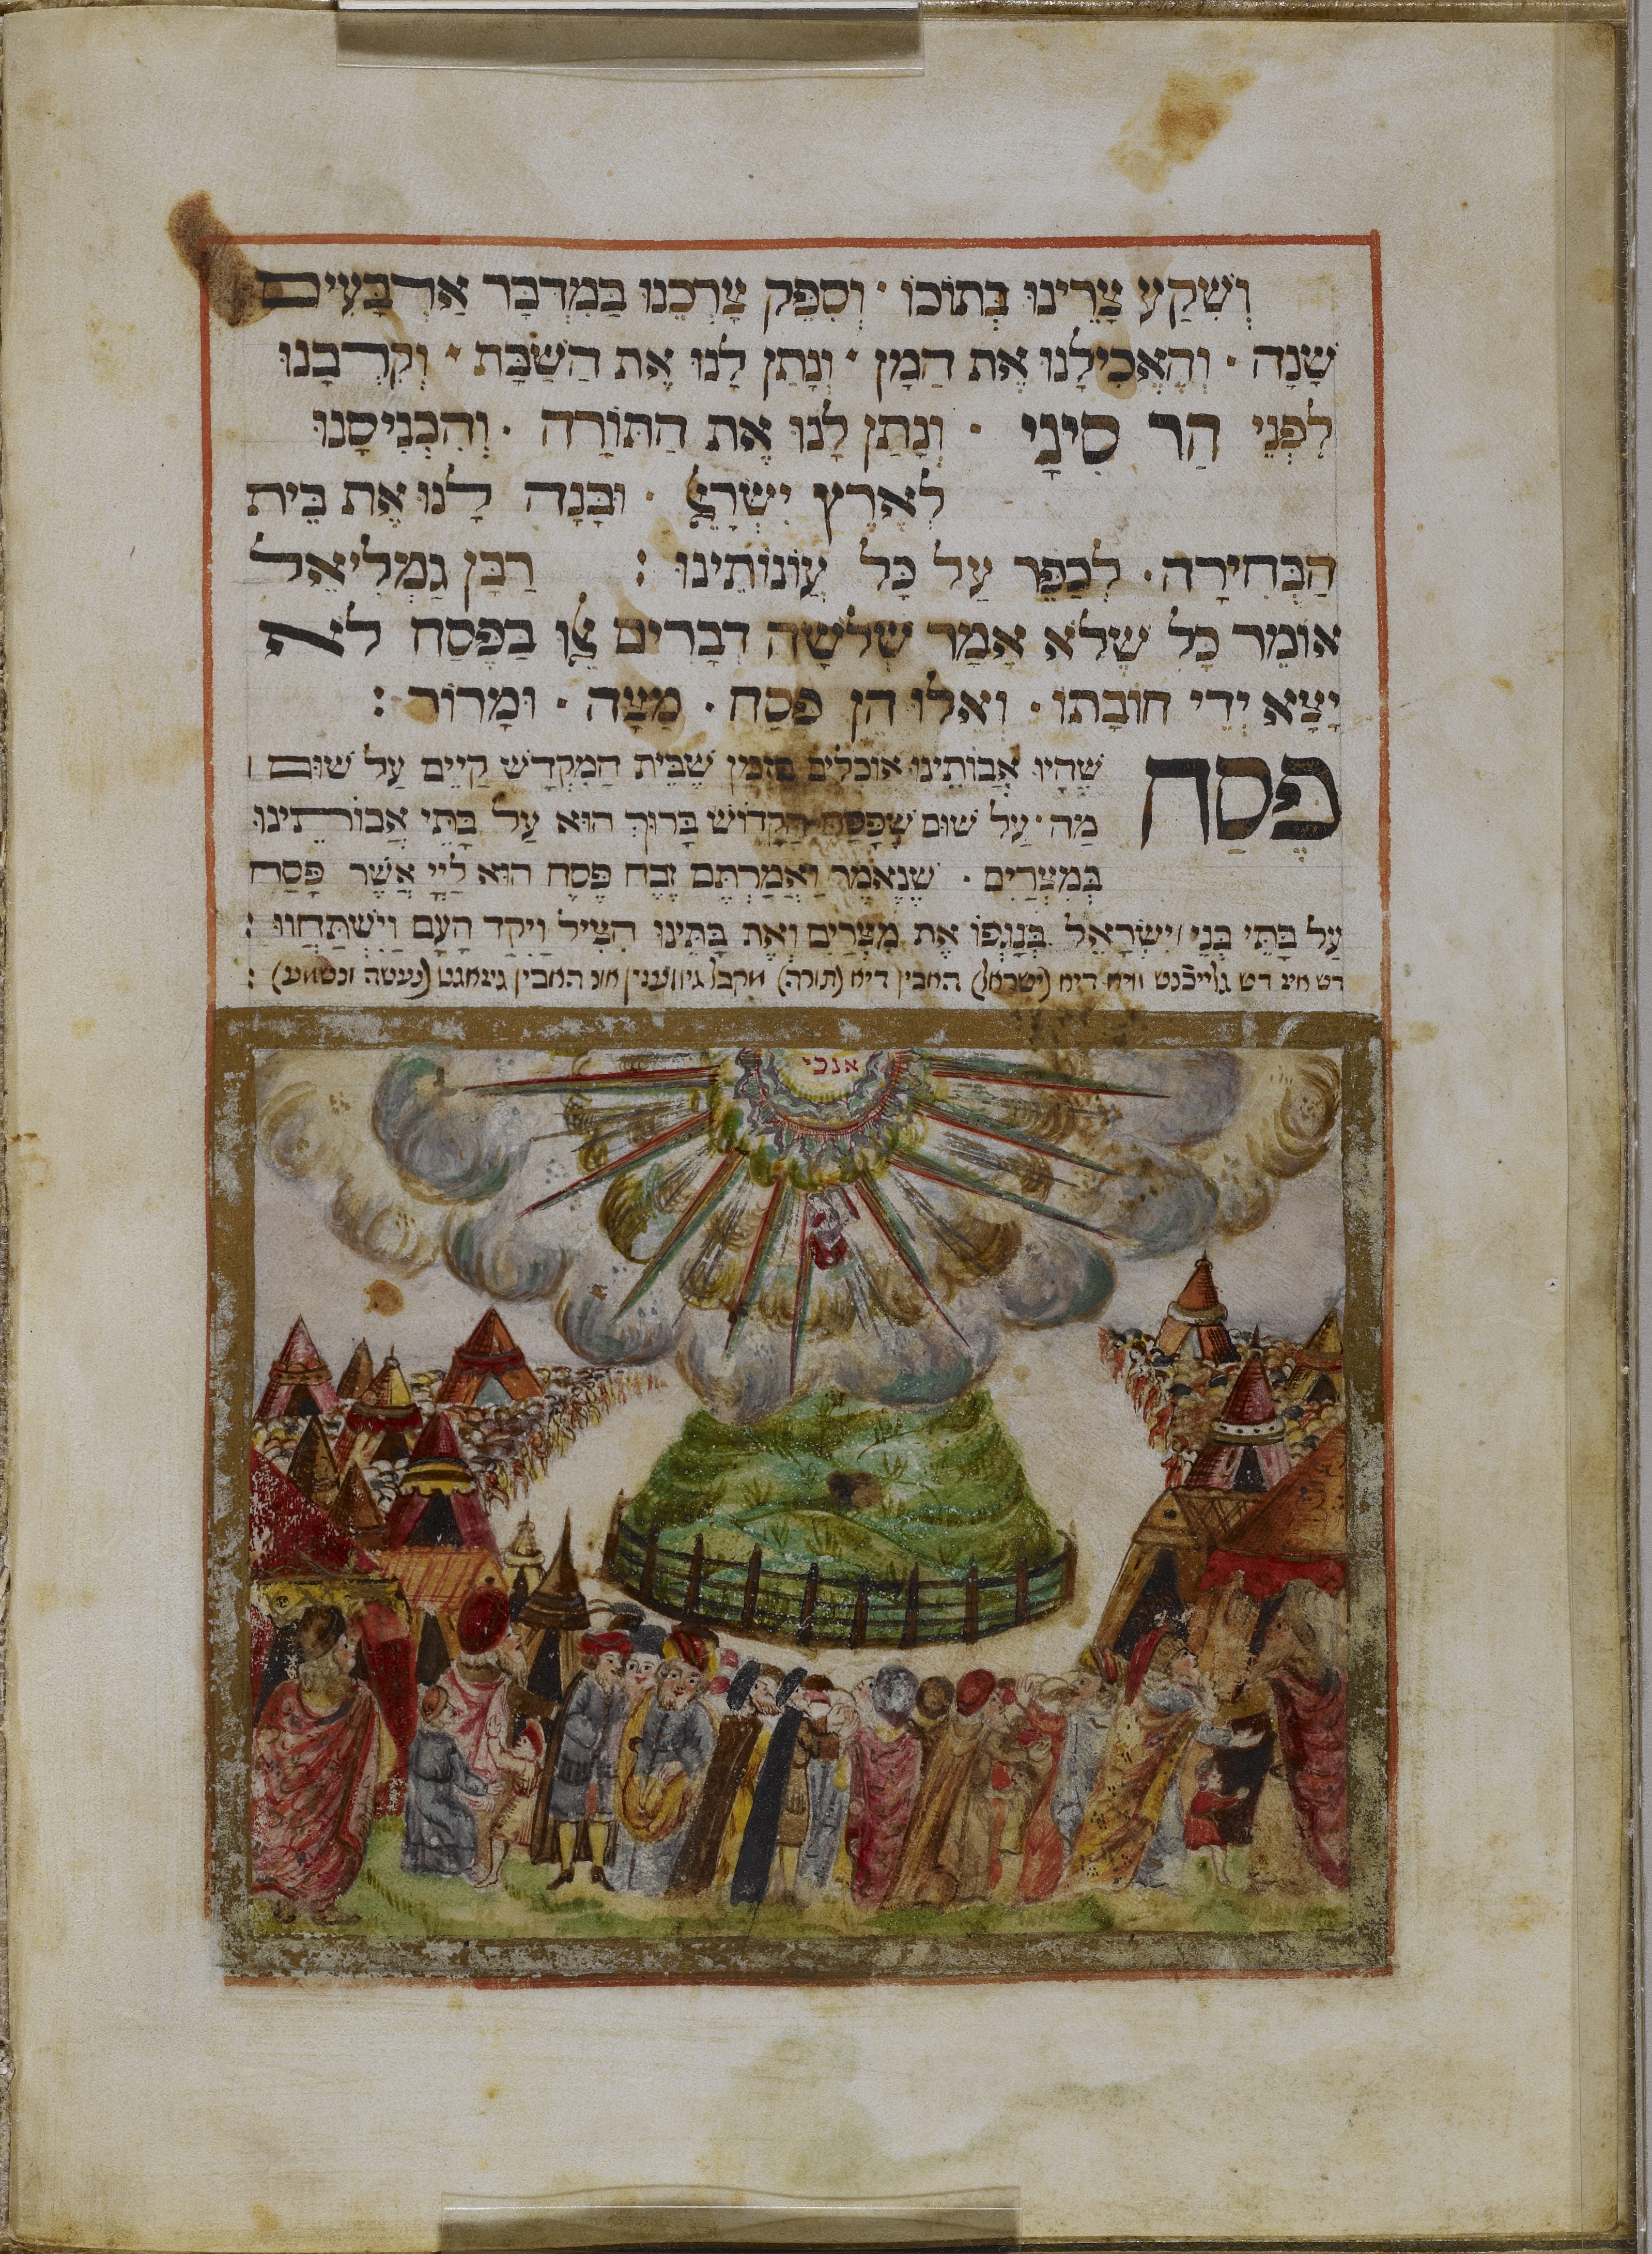 וְשִׁקַע צָרֵינוּ בְּתוֹכוֹ · וְסִפֵּק צָרְכֵנוּ בַּמִדְבָּר אַרְבָּעִים
שָׁנָה · וְהֶאֱכִילָנוּ אֶת הַמָן · וְנָתַן לָנוּ אֶת הַשַׁבָּת · וְקֵרְבָנוּ
לִפְנֵי הַר סִינָי · וְנָתַן לָנוּ אֶת הַתּוֹרָה · וְהִכְנִיסָנוּ
לְאֶרֶץ יִשְׂרָאֵל · וּבָנָה לָנוּ אֶת בֵּית
הַבְּחִירָה · לְכַפֵּר עַל כָּל עֲוֹנוֹתֵינוּ : רַבָּן גַמְלִיאֵל
אוֹמֵר כָּל שֶׁלֹא אָמַר שְׁלֹשָׁה דְבָרִים אֵלּוּ בַּפֶּסַח לֹא
יָצָא יְדֵי חוֹבָתוֹ · וְאֵלוּ הֵן פֶּסַח · מַצָה · וּמָרוֹר :
פֶּסַח שֶׁהָיוּ אֲבוֹתֵינוּ אוֹכְלִים בִּזְמַן שֶׁבֵּית הַמִקְדָשׁ קַיֵים עַל שׁוּם
מַה · עַל שׁוּם שֶׁפָּסַח הַקָדוֹשׁ בָּרוּךְ הוּא עַל בָּתֵּי אֲבוֹתֵינוּ
בְּמִצְרַיִם · שֶׁנֶאֱמַר וַאֲמַרְתֶּם זֶבַח פֶּסַח הוּא לַיְיָ אֲשֶׁר פָּסַח
עַל בָּתֵּי בְּנֵי יִשְׂרָאֵל בְּנָגְפּוֹ אֶת מִצְרַיִם וְאֶת בָּתֵּינוּ הִצִיל וַיִקֹד הָעָם וַיִשְׁתַּחֲווּ :
דש איז דש גלייכנוש וויא דיא (ישראל) האבין דיא (תורה) מקבל גיוועזין אונ האבין גיזאגט (נעשה ונשמע) :
אנכי